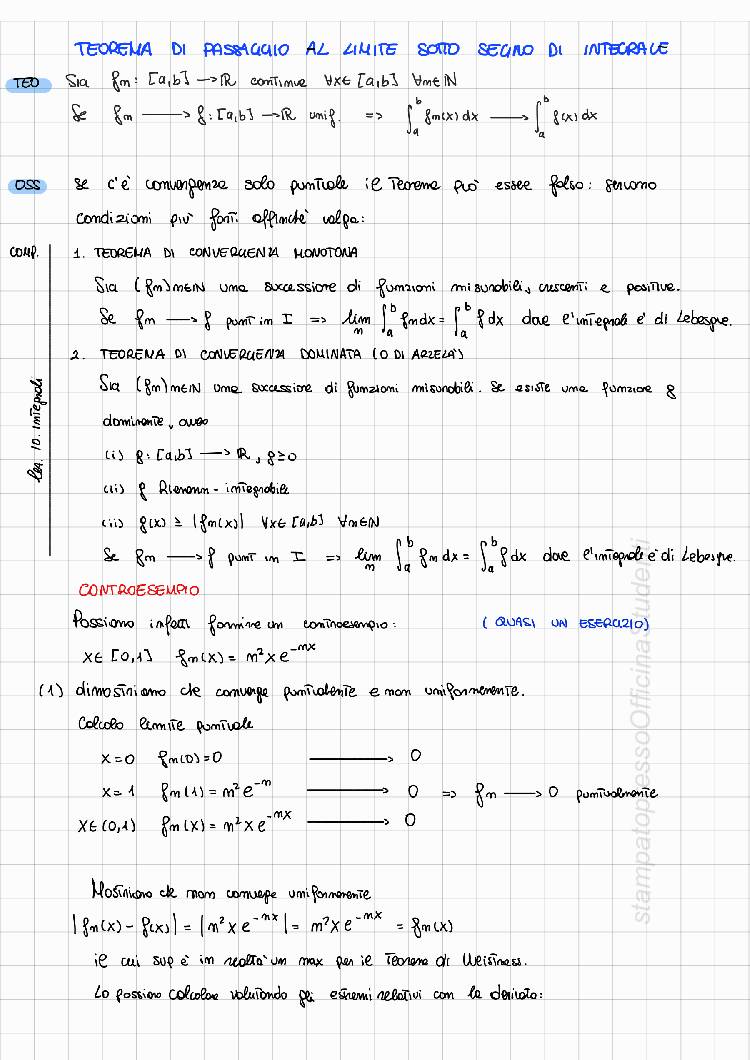 TEOREMA DI PASSAGGIO AL LIMITE SOTTO SEGNO DI INTEGRALE
TEO Sia fn: [a,b] → ℝ continue ∀x∈[a,b] ∀n∈ℕ
Se fn ⟶ f: [a,b] → ℝ unif. => ∫_a^b fn(x) dx ⟶ ∫_a^b f(x) dx
OSS se c'è convergenza solo puntuale il Teorema può essere falso: servono
condizioni più forti affinché valga:
COMP. 1. TEOREMA DI CONVERGENZA MONOTONA
Sia (fn)n∈ℕ una successione di funzioni misurabili, crescenti e positive.
Se fn ⟶ f punt in I => lim_n ∫_a^b fn dx = ∫_a^b f dx dove l'integrale è di Lebesgue.
2. TEOREMA DI CONVERGENZA DOMINATA (O DI ARZELÀ)
Sia (fn)n∈ℕ una successione di funzioni misurabili. Se esiste una funzione g
dominante, ovvero
(i) g: [a,b] ⟶ ℝ, g≥0
(ii) g Riemann-integrabile
(iii) g(x) ≥ |fn(x)| ∀x∈[a,b] ∀n∈ℕ
Se fn ⟶ f punt in I => lim_n ∫_a^b fn dx = ∫_a^b f dx dove l'integrale è di Lebesgue.
Leg. 10. Integrali
CONTROESEMPIO
Possiamo infatti fornire un controesempio: (QUASI UN ESERCIZIO)
x∈[0,1] fn(x) = n² x e^{-nx}
(1) dimostriamo che converge puntualmente e non uniformemente.
Calcolo limite puntuale
x=0 fn(0)=0 ⟶ 0
x=1 fn(1)=n² e^{-n} ⟶ 0 => fn ⟶ 0 puntualmente
x∈(0,1) fn(x) = n² x e^{-nx} ⟶ 0
Mostriamo che non converge uniformemente
|fn(x) - f(x)| = |n² x e^{-nx}| = n² x e^{-nx} = fn(x)
il cui sup è in realtà un max per il Teorema di Weistrass.
Lo possiamo calcolare valutando gli estremi relativi con la derivata:
stampatopressoOfficinaStudenti